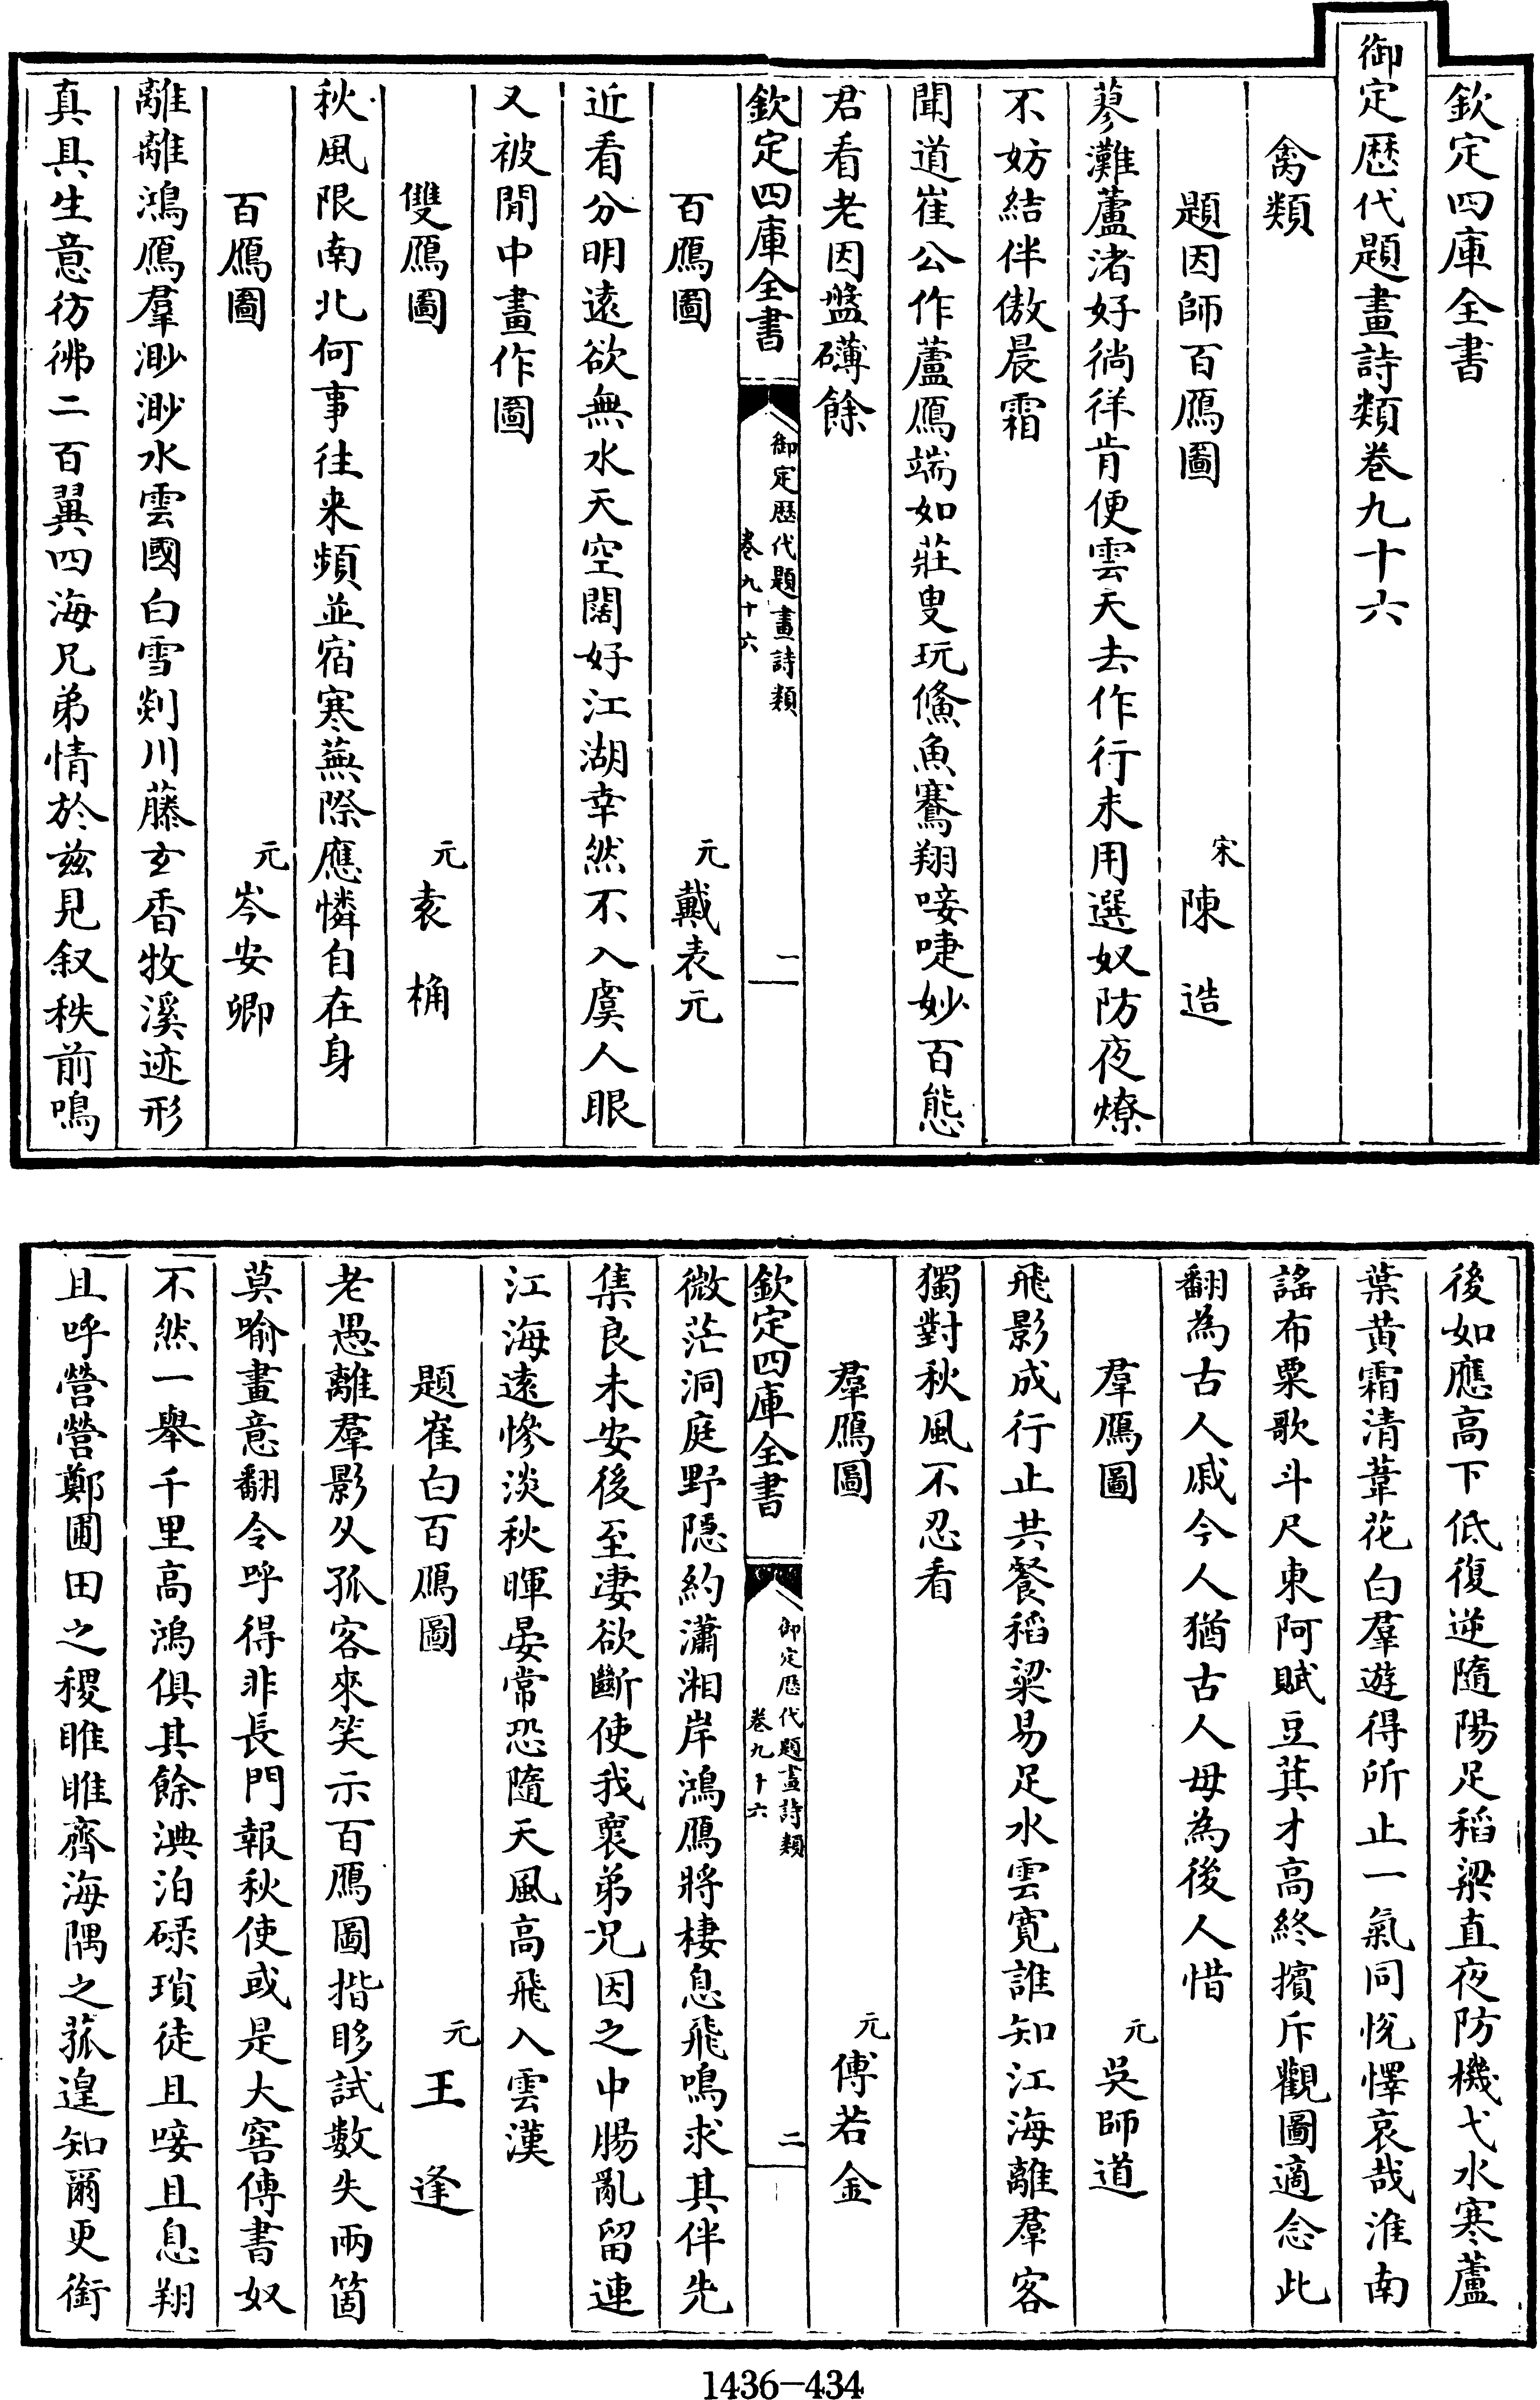 欽定四庫全書
御定歴代題畫詩類巻九十六
禽類
題因師百鴈圖
宋陳造
蓼灘蘆渚好徜徉肯便雲天去作行未用選奴防夜燎
不妨結伴傲晨霜
聞道崔公作蘆鴈端如莊叟玩鯈魚鶱翔唼啑妙百態
君看老因盤礴餘
欽定四庫全書
御定歴代題畫詩類
巻九十六
一
百鴈圖
元戴表元
近看分明遠欲無水天空闊好江湖幸然不入虞人眼
又被閒中畫作圖
雙鴈圖
元袁桷
秋風限南北何事往来頻並宿寒蕪際應憐自在身
百鴈圖
元岑安卿
離離鴻鴈羣渺渺水雲國白雪剡川藤玄香牧溪迹形
真具生意彷彿二百翼四海兄弟情於兹見叙秩前鳴
後如應高下低復逆隨陽足稻粱直夜防機弋水寒蘆
葉黄霜清葦花白羣遊得所止一氣同悅懌哀哉淮南
謡布粟歌斗尺東阿賦豆萁才高終擯斥觀圖適念此
翻為古人戚今人猶古人毋為後人惜
羣鴈圖
元吳師道
飛影成行止共餐稻粱易足水雲寛誰知江海離羣客
獨對秋風不忍看
羣鴈圖
元傅若金
欽定四庫全書
御定歴代題畫詩類
巻九十六
二
微茫洞庭野隠約瀟湘岸鴻鴈將棲息飛鳴求其伴先
集良未安後至凄欲斷使我褱弟兄因之中腸亂留連
江海遠慘淡秋暉晏常恐隨天風高飛入雲漢
題崔白百鴈圖
元王逢
老愚離羣影久孤客來笑示百鴈圖揩眵試數失兩箇
莫喻畫意翻令呼得非長門報秋使或是大窖傳書奴
不然一舉千里高鴻俱其餘淟泊碌瑣徒且唼且息翔
且呼營營鄭圃田之稷睢睢齊海隅之菰遑知爾更銜
1436-434